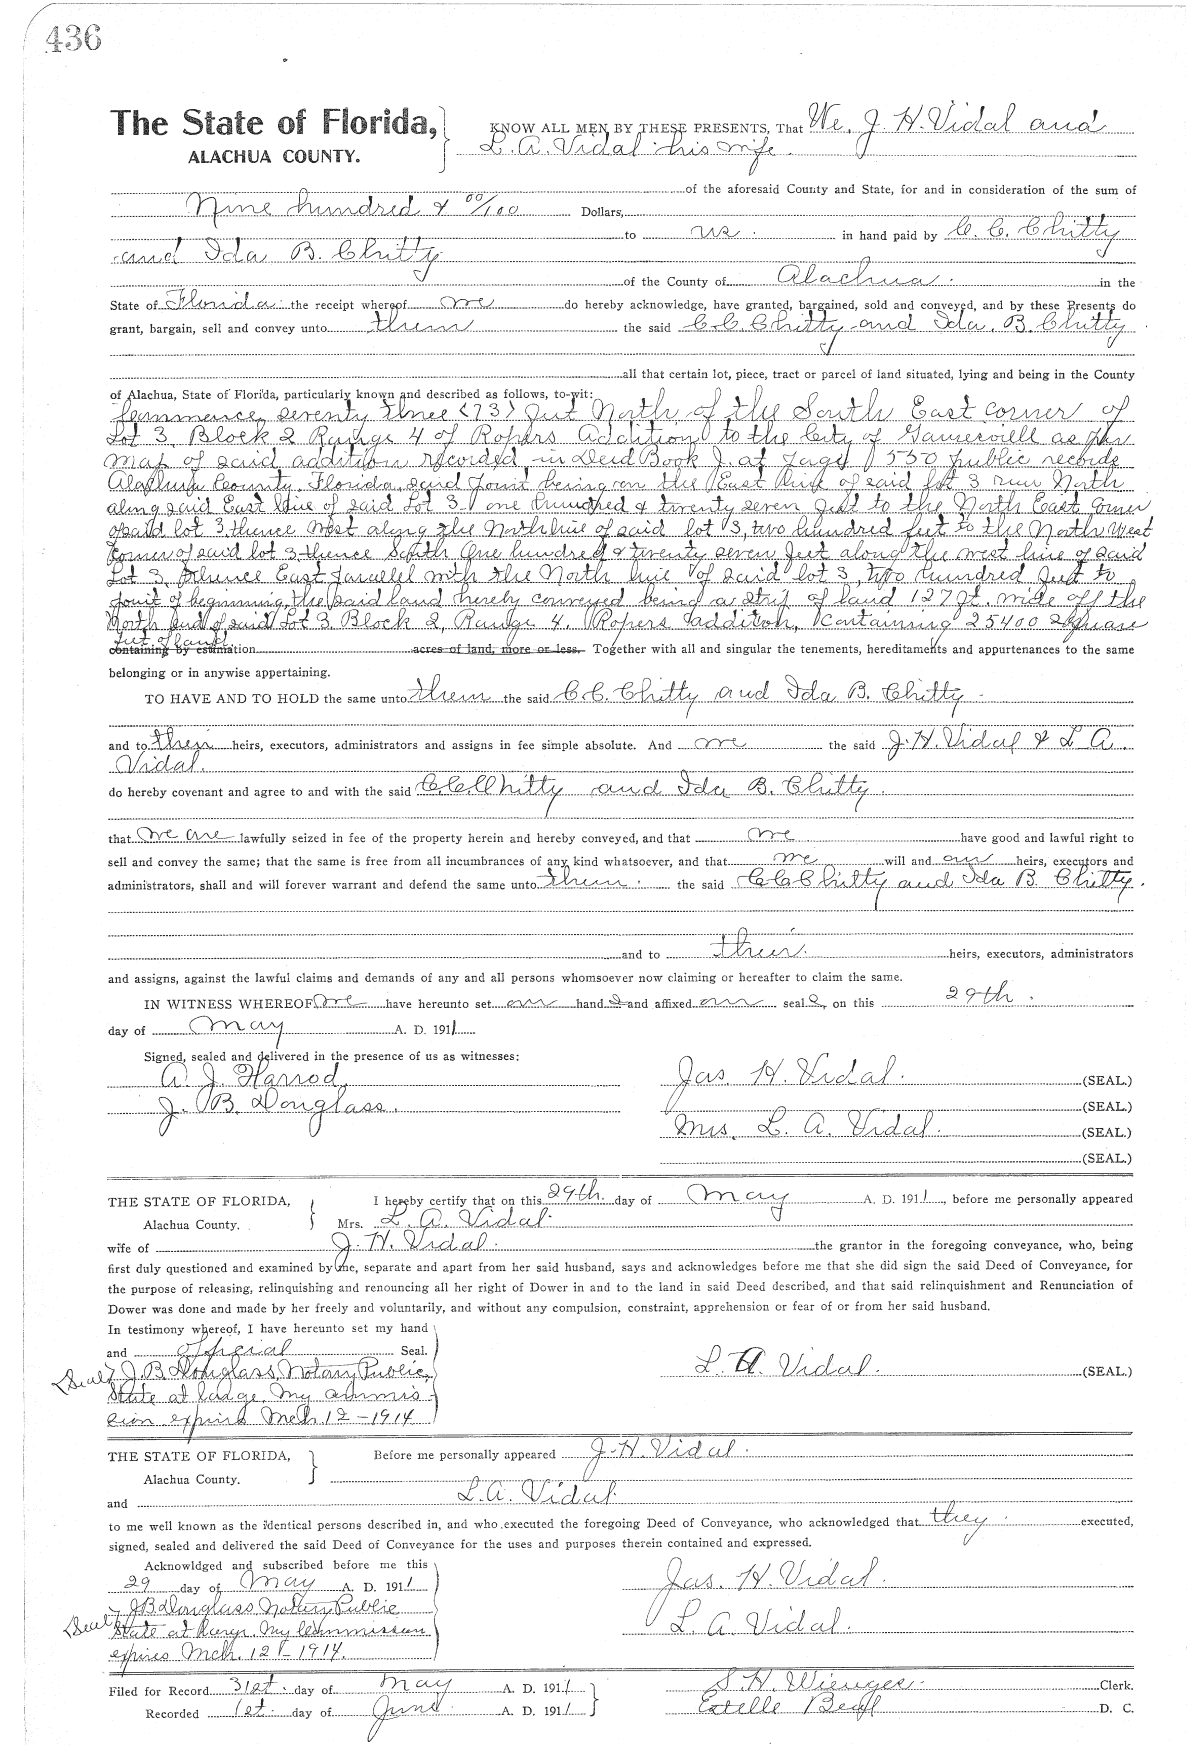 436
The State of Florida, KNOW ALL MEN BY THESE PRESENTS, That We, J. H. Vidal and
ALACHUA COUNTY. L. A. Vidal his wife
of the aforesaid County and State, for and in consideration of the sum of
Nine hundred & 00/100 Dollars,
to us in hand paid by C. C. Chitty
and Ida B. Chitty
of the County of Alachua in the
State of Florida the receipt whereof we do hereby acknowledge, have granted, bargained, sold and conveyed, and by these Presents do
grant, bargain, sell and convey unto them the said C. C. Chitty and Ida. B. Chitty
all that certain lot, piece, tract or parcel of land situated, lying and being in the County
of Alachua, State of Florida, particularly known and described as follows, to-wit:
Commence seventy three (73) feet North of the South East corner of
Lot 3, Block 2 Range 4 of Ropers Addition to the City of as per
map of said addition recorded in Deed Book J. at page 550 public records
Alachua County, Florida, said point being on the East line of said lot 3 run North
along said East line of said Lot 3 one hundred & twenty seven feet to the North East corner
of said lot 3, thence West along the North line of said lot 3, two hundred feet to the North West
corner of said lot 3 thence South One hundred & twenty seven feet along the west line of said
Lot 3, thence East parallel with the North line of said lot 3, two hundred feet to
point of beginning, the said land hereby conveyed being a strip of land 127 ft. wide off the
North End of said Lot 3 Block 2, Range 4. Ropers addition, Containing 25400 Square
feet of land
containing by estimation acres of land, more or less. Together with all and singular the tenements, hereditaments and appurtenances to the same
belonging or in anywise appertaining.
TO HAVE AND TO HOLD the same unto them the said C. C. Chitty and Ida B. Chitty
and to their heirs, executors, administrators and assigns in fee simple absolute. And we the said J. H. Vidal & L A
Vidal.
do hereby covenant and agree to and with the said C. C. Chitty and Ida B. Chitty.
that we are lawfully seized in fee of the property herein and hereby conveyed, and that we have good and lawful right to
sell and convey the same; that the same is free from all incumbrances of any kind whatsoever, and that we will and our heirs, executors and
administrators, shall and will forever warrant and defend the same unto them the said C C Chitty and Ida B. Chitty.
and to their heirs, executors, administrators
and assigns, against the lawful claims and demands of any and all persons whomsoever now claiming or hereafter to claim the same.
IN WITNESS WHEREOF we have hereunto set our hand s and affixed our seal s, on this 29th.
day of May A. D. 1911
Signed, sealed and delivered in the presence of us as witnesses:
A. J. Harrod Jas. H. Vidal. (SEAL.)
J. B. Douglass. (SEAL.)
Mrs. L. A. Vidal. (SEAL.)
(SEAL.)
THE STATE OF FLORIDA, I hereby certify that on this 29th. day of May A. D. 1911, before me personally appeared
Alachua County. Mrs. L. A. Vidal.
wife of J. H. Vidal. the grantor in the foregoing conveyance, who, being
first duly questioned and examined by me, separate and apart from her said husband, says and acknowledges before me that she did sign the said Deed of Conveyance, for
the purpose of releasing, relinquishing and renouncing all her right of Dower in and to the land in said Deed described, and that said relinquishment and Renunciation of
Dower was done and made by her freely and voluntarily, and without any compulsion, constraint, apprehension or fear of or from her said husband.
In testimony whereof, I have hereunto set my hand
and official Seal.
(Seal) J. B. Douglass, Notary Public, L. A. Vidal. (SEAL)
State at Large, My commis
sion expires Mch. 12 - 1914
THE STATE OF FLORIDA, Before me personally appeared J. H. Vidal.
Alachua County.
and L. A. Vidal.
to me well known as the identical persons described in, and who executed the foregoing Deed of Conveyance, who acknowledged that they executed,
signed, sealed and delivered the said Deed of Conveyance for the uses and purposes therein contained and expressed.
Acknowldged and subscribed before me this
29 day of May A. D. 1911 Jas. H. Vidal.
(Seal) J B Douglass Notary Public
State at Large. My Commission L. A. Vidal.
expires Mch. 12 - 1914.
Filed for Record 31st. day of May A. D. 1911 S. H. Wienges. Clerk.
Recorded 1st. day of June A. D. 1911 Estelle D. C.